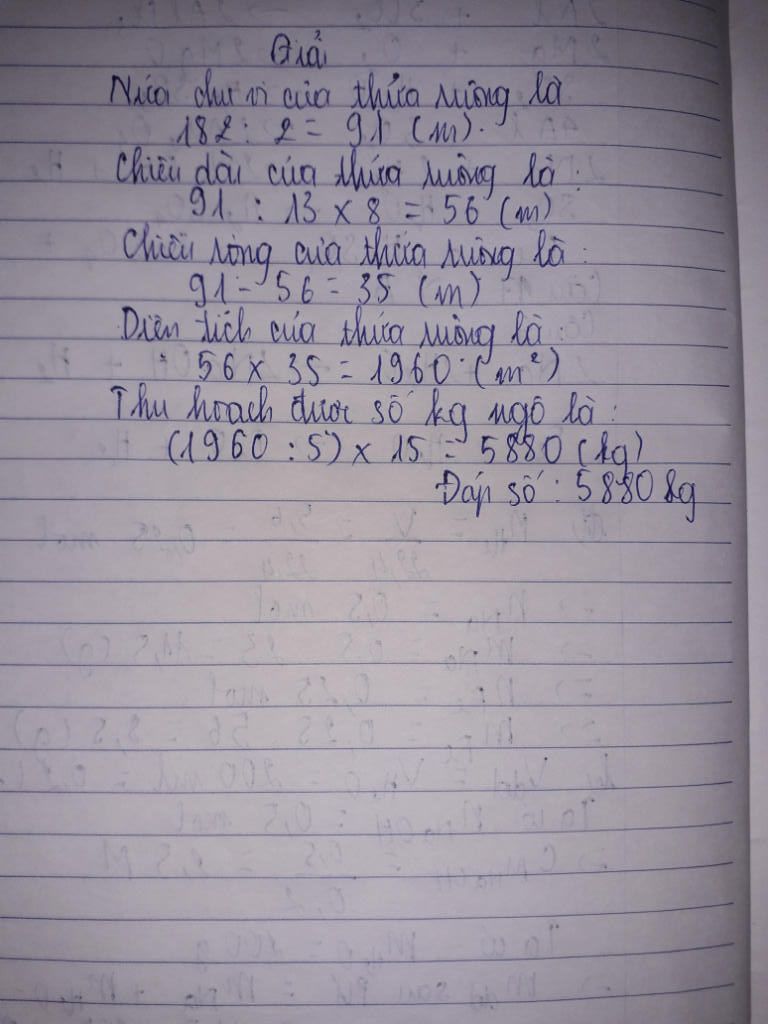 Giải
Nửa chu vi của thửa ruộng là
182 : 2 = 91 (m).
Chiều dài của thửa ruộng là :
91 : 13 x 8 = 56 (m)
Chiều rộng của thửa ruộng là :
91 - 56 = 35 (m)
Diện tích của thửa ruộng là :
56 x 35 = 1960 (m²)
Thu hoạch được số kg ngô là :
(1960 : 5) x 15 = 5880 (kg)
Đáp số : 5880 kg